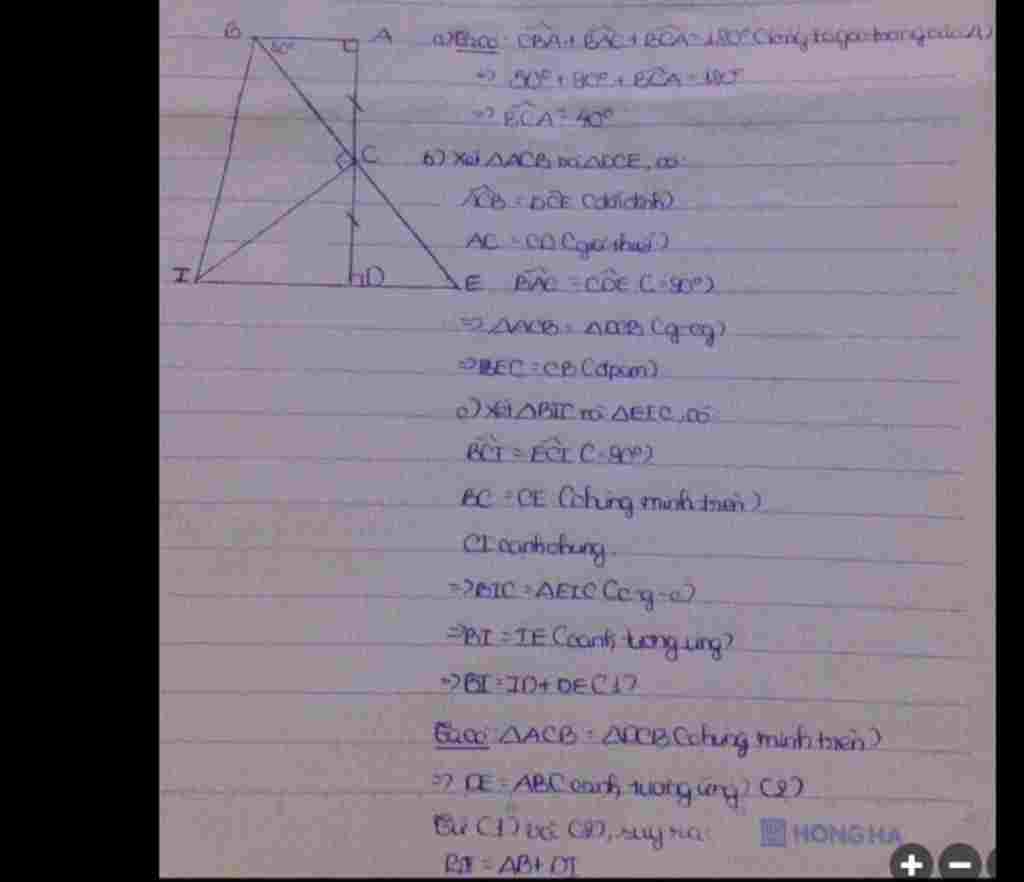 B
A
50°
C
I
D
E
a) Ta có: CBA + BAC + BCA = 180° (tổng ba góc trong của Δ)
=> 50° + 90° + BCA = 180°
=> BCA = 40°
b) Xét ΔACB và ΔDCE, có:
ACB = DCE (đối đỉnh)
AC = CD (giả thuết)
BAC = CDE (=90°)
=> ΔACB = ΔDCB (g-c-g)
=> BEC = CB (đpcm)
c) Xét ΔBIC và ΔEIC, có
BCI = ECI (=90°)
BC = CE (chứng minh trên)
CI cạnh chung
=> BIC = ΔEIC (c-g-c)
=> BI = IE (cạnh tương ứng)
=> BI = ID + DE (1)
Ta có: ΔACB = ΔDCB (chứng minh trên)
=> DE = AB (cạnh tương ứng) (2)
Từ (1) và (2), suy ra:
BI = AB + DI
HONG HA